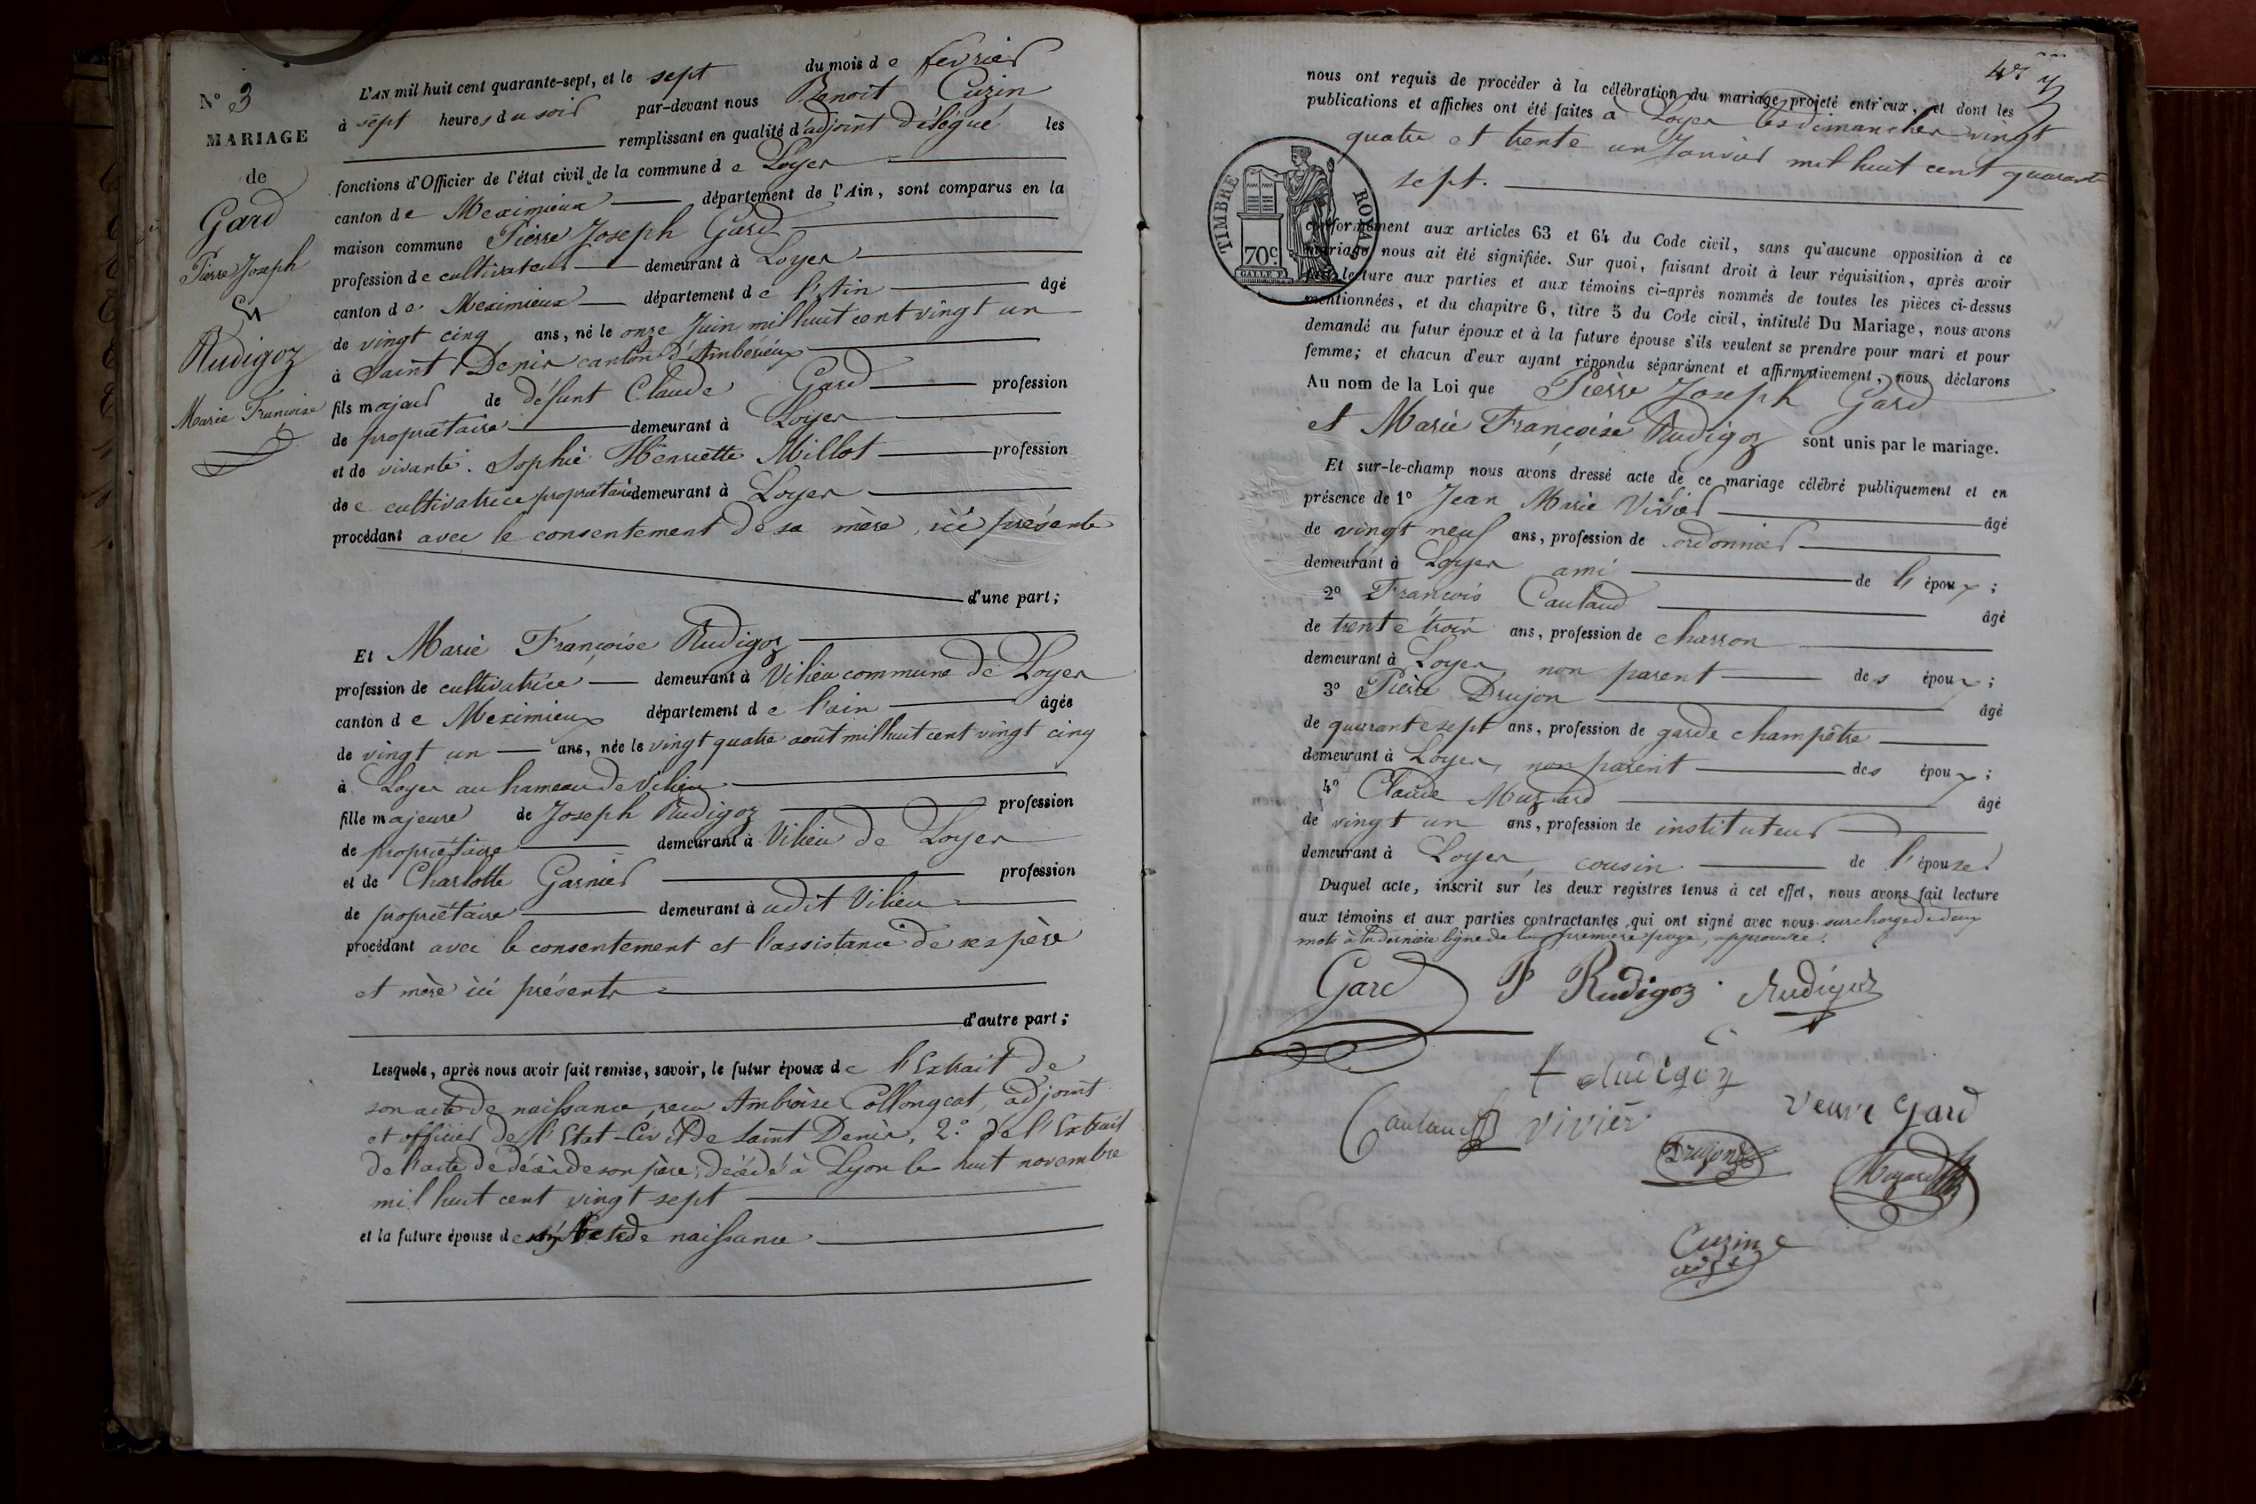 N° 3
MARIAGE
de
Gard
Pierre Joseph
Et
Rudigoz
Marie Françoise
L'AN mil huit cent quarante-sept, et le sept du mois de fevrier
à sept heures du soir par-devant nous Benoit Cuzin
remplissant en qualité d'adjoint délégué les
fonctions d'Officier de l'état civil de la commune de Loyer
canton de Meximieux département de l'Ain, sont comparus en la
maison commune Pierre Joseph Gard
profession de cultivateur demeurant à Loyer
canton de Meximieux département de l'Ain âgé
de vingt cinq ans, né le onze Juin mil huit cent vingt un
à Saint Denis canton d'Ambérieux
fils majeur de défunt Claude Gard profession
de propriétaire demeurant à Loyer
et de vivante Sophie Henriette Millot profession
de cultivatrice propriétaire demeurant à Loyer
procédant avec le consentement de sa mère, ici présente
d'une part;
Et Marie Françoise Rudigoz
profession de cultivatrice demeurant à Vilieu commune de Loyer
canton de Meximieux département de l'ain âgée
de vingt un ans, née le vingt quatre août mil huit cent vingt cinq
à Loyer au hameau de Vilieu
fille majeure de Joseph Rudigoz profession
de propriétaire demeurant à Vilieu de Loyer
et de Charlotte Garnier profession
de propriétaire demeurant à udit Vilieu
procédant avec le consentement et l'assistance de ses père
et mère ici présents
d'autre part;
Lesquels, après nous avoir fait remise, savoir, le futur époux de l'Extrait de
son acte de naissance, reçu Ambroise Collongeat, adjoint
et officier de l'Etat-Civil de Saint Denis, 2° de l'Extrait
de l'acte de décès de son père, décédé à Lyon le huit novembre
mil huit cent vingt sept
et la future épouse de Acte de naissance
nous ont requis de procéder à la célébration du mariage projeté entr'eux, et dont les
publications et affiches ont été faites à Loyer les dimanches vingt
quatre et trente un Janvier mil huit cent quarante
sept.
TIMBRE ROYAL
70c
conformément aux articles 63 et 64 du Code civil, sans qu'aucune opposition à ce
mariage nous ait été signifiée. Sur quoi, faisant droit à leur réquisition, après avoir
fait lecture aux parties et aux témoins ci-après nommés de toutes les pièces ci-dessus
mentionnées, et du chapitre 6, titre 5 du Code civil, intitulé Du Mariage, nous avons
demandé au futur époux et à la future épouse s'ils veulent se prendre pour mari et pour
femme; et chacun d'eux ayant répondu séparément et affirmativement, nous déclarons
Au nom de la Loi que Pierre Joseph Gard
et Marie Françoise Rudigoz sont unis par le mariage.
Et sur-le-champ nous avons dressé acte de ce mariage célébré publiquement et en
présence de 1° Jean Marie Vivier âgé
de vingt neuf ans, profession de cordonnier
demeurant à Loyer ami de l'époux;
2° François Cautaud âgé
de trente trois ans, profession de charron
demeurant à Loyer, non parent des époux;
3° Pierre Drujon âgé
de quarante sept ans, profession de garde champêtre
demeurant à Loyer, non parent des époux;
4° Claude Muzard âgé
de vingt un ans, profession de instituteur
demeurant à Loyer, cousin de l'épouse.
Duquel acte, inscrit sur les deux registres tenus à cet effet, nous avons fait lecture
aux témoins et aux parties contractantes qui ont signé avec nous. surcharge de deux
mots à la dernière ligne de la première page, approuvée.
Gard P Rudigoz Rudigoz
Rudigoz
Cautaud Vivier Veuve Gard
Drujon
Cuzin
adjt